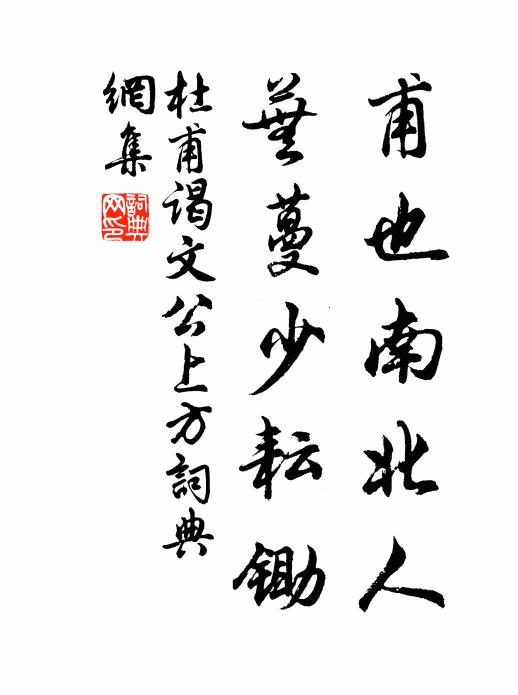 甫也南北人
蕪蔓少耘鋤
杜甫謁文公上方詞典
網集
詞典網印